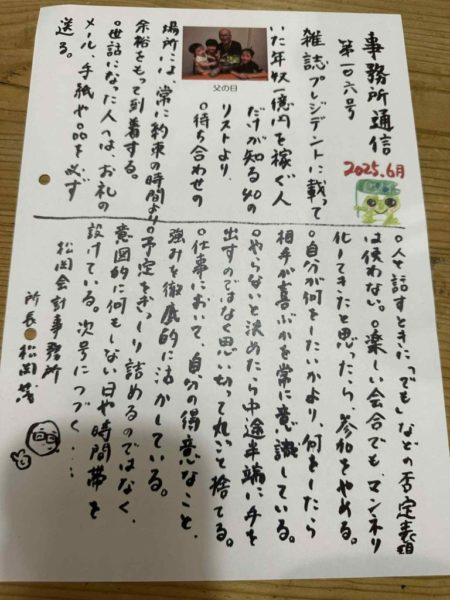 事務所通信
第一〇六号
2025.6月
雑誌プレジデントに載って
いた年収一億円を稼ぐ人
だけが知る40の
リストより、
○待ち合わせの
場所には、常に約束の時間より
余裕をもって到着する。
○世話になった人へは、お礼の
メール、手紙や品を必ず
送る。
父の日
○人と話すときに「でも」などの否定表現
は使わない。○楽しい会合でも、マンネリ
化してきたと思ったら、参加をやめる。
○自分が何をしたいかより、何をしたら
相手が喜ぶかを常に意識している。
○やらないと決めたら中途半端に手を
出すのではなく思い切って丸ごと捨てる。
○仕事において、自分の得意なこと、
強みを徹底的に活かしている。
○予定をぎっしり詰めるのではなく、
意図的に何もしない日や時間帯を
設けている。次号につづく…
松岡会計事務所
所長 松岡茂